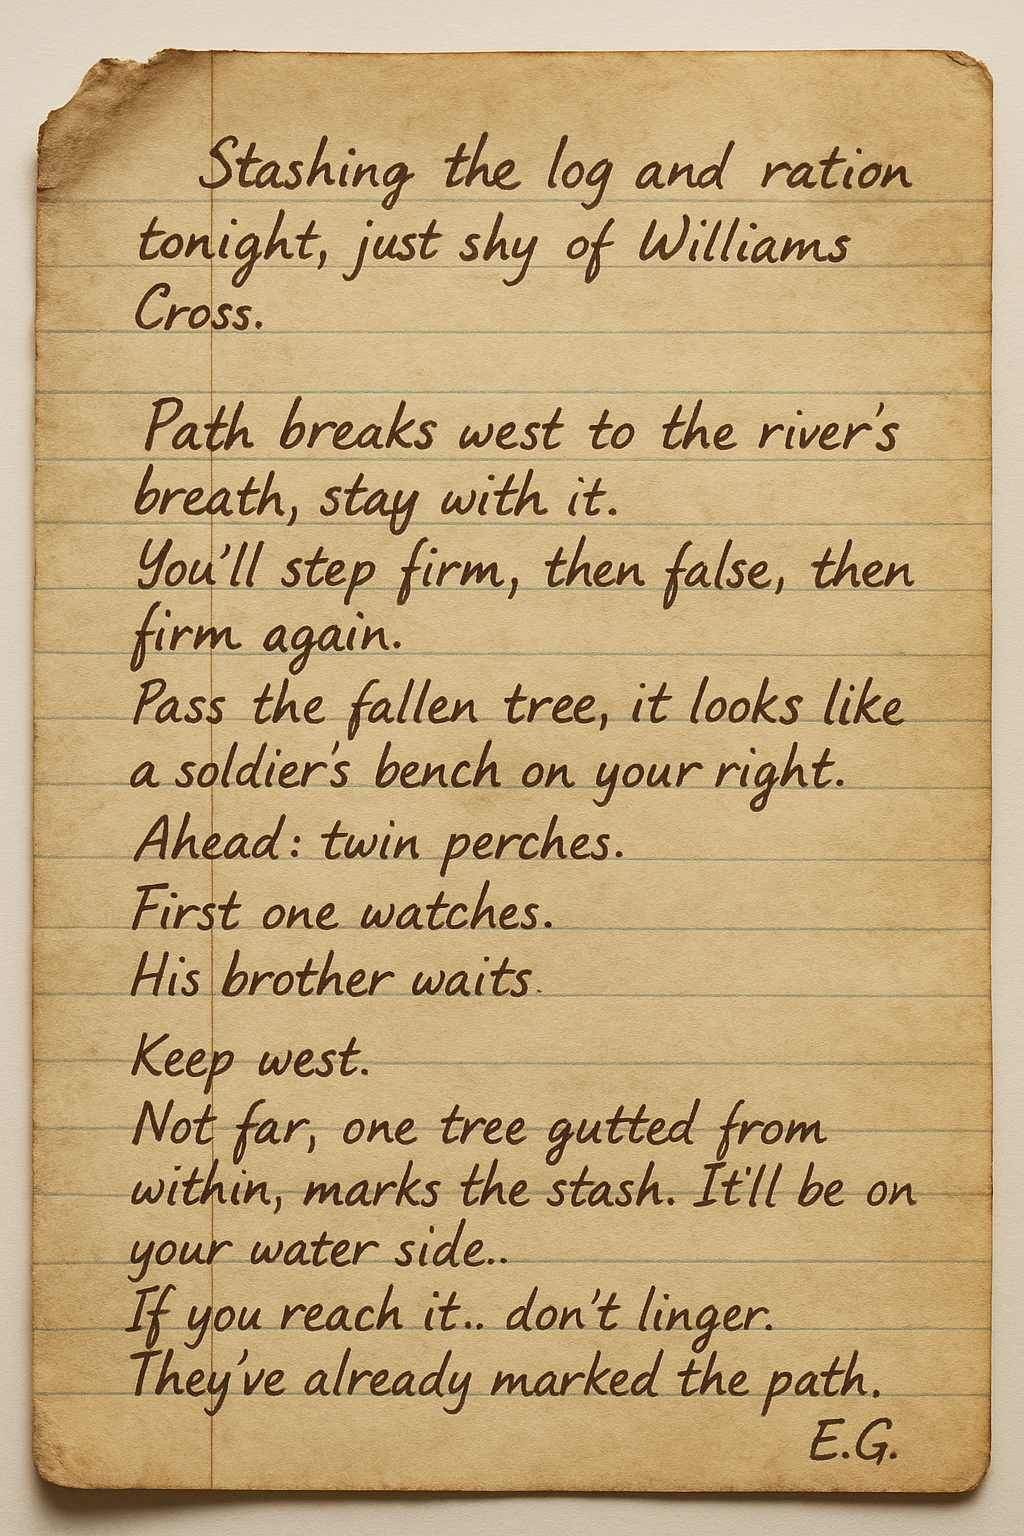 Stashing the log and ration
tonight, just shy of Williams
Cross.
Path breaks west to the river's
breath, stay with it.
You'll step firm, then false, then
firm again.
Pass the fallen tree, it looks like
a soldier's bench on your right.
Ahead: twin perches.
First one watches.
His brother waits.
Keep west.
Not far, one tree gutted from
within, marks the stash. It'll be on
your water side..
If you reach it.. don't linger.
They've already marked the path.
E.G.